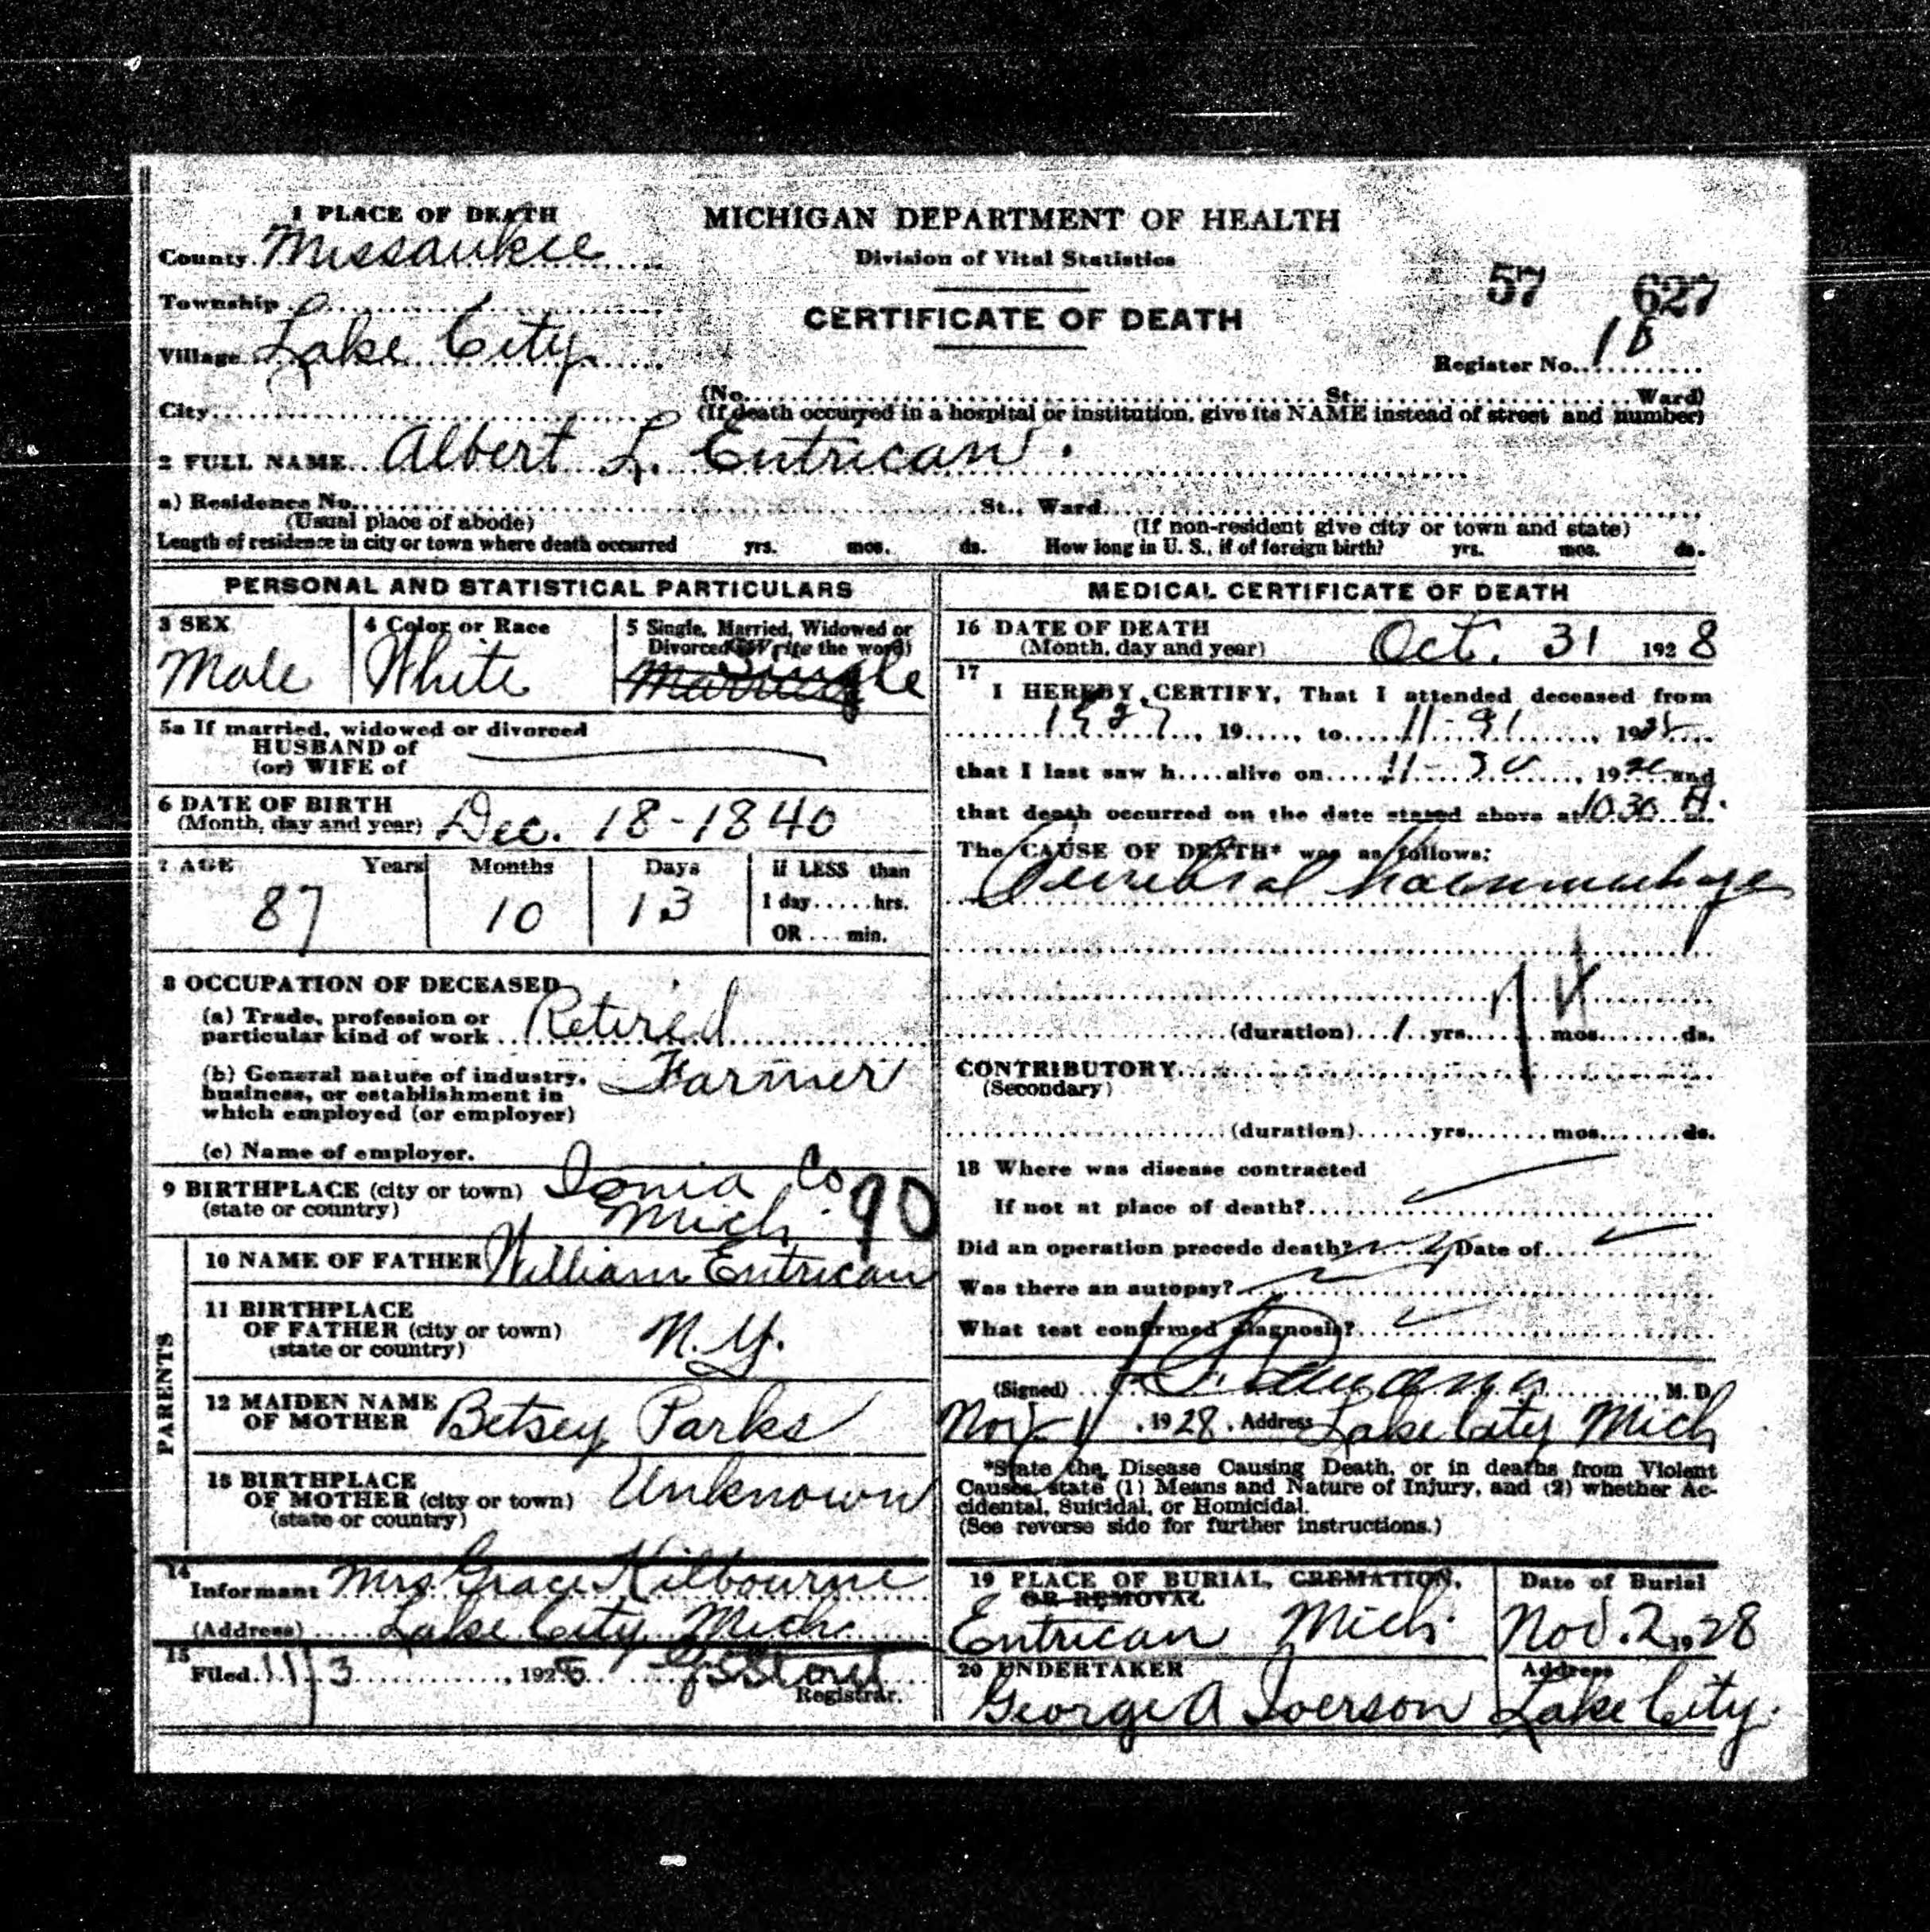 1 PLACE OF DEATH
MICHIGAN DEPARTMENT OF HEALTH
Division of Vital Statistics
CERTIFICATE OF DEATH
57 627
Register No. 18
County Missaukee
Township
Village Lake City
City
(No. St. Ward)
(If death occurred in a hospital or institution, give its NAME instead of street and number)
2 FULL NAME Albert L. Entrican
a) Residence No. St., Ward
(Usual place of abode) (If non-resident give city or town and state)
Length of residence in city or town where death occurred yrs. mos. ds. How long in U. S., if of foreign birth? yrs. mos. ds.
PERSONAL AND STATISTICAL PARTICULARS
3 SEX
Male
4 Color or Race
White
5 Single, Married, Widowed or
Divorced (Write the word)
Married Single
5a If married, widowed or divorced
HUSBAND of
(or) WIFE of
6 DATE OF BIRTH
(Month, day and year) Dec. 18-1840
7 AGE Years Months Days if LESS than
87 10 13 1 day hrs.
OR min.
8 OCCUPATION OF DECEASED
(a) Trade, profession or
particular kind of work Retired
(b) General nature of industry,
business, or establishment in
which employed (or employer) Farmer
(c) Name of employer.
9 BIRTHPLACE (city or town) Ionia Co
(state or country) Mich. 90
PARENTS
10 NAME OF FATHER William Entrican
11 BIRTHPLACE
OF FATHER (city or town)
(state or country) N.Y.
12 MAIDEN NAME
OF MOTHER Betsey Parks
13 BIRTHPLACE
OF MOTHER (city or town) Unknown
(state or country)
14
Informant Mrs. Grace Kilbourne
(Address) Lake City Mich.
15
Filed 11/3, 1928
Registrar.
MEDICAL CERTIFICATE OF DEATH
16 DATE OF DEATH
(Month, day and year) Oct. 31 1928
17
I HEREBY CERTIFY, That I attended deceased from
1927, 19, to 11-31, 19
that I last saw h alive on 11-30, 19 and
that death occurred on the date stated above at 10:30 A.
The CAUSE OF DEATH* was as follows:
Cerebral haemmorhage
74
(duration) 1 yrs. mos. ds.
CONTRIBUTORY
(Secondary)
(duration) yrs. mos. ds.
18 Where was disease contracted
If not at place of death?
Did an operation precede death? Date of
Was there an autopsy?
What test confirmed diagnosis?
(Signed) , M. D.
Nov 1, 1928. Address Lake City Mich
*State the Disease Causing Death, or in deaths from Violent
Causes, state (1) Means and Nature of Injury, and (2) whether Ac-
cidental, Suicidal, or Homicidal.
(See reverse side for further instructions.)
19 PLACE OF BURIAL, CREMATION,
OR REMOVAL
Entrican Mich.
Date of Burial
Nov. 2 1928
20 UNDERTAKER
George A Iverson
Address
Lake City.